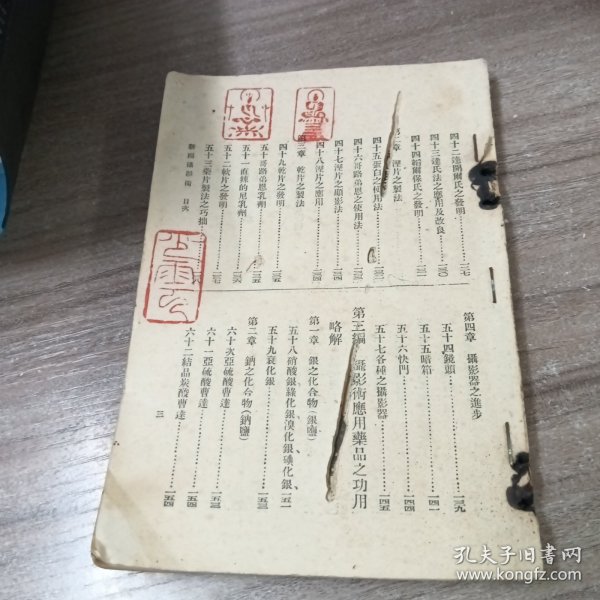 四十二達開爾氏之發明……一二七
四十三達氏法之應用及改良……一三〇
四十四韜爾保氏之發明……一三一
第二章　溼片之製法
四十五蛋白之使用法……一三二
四十六哥路弟恩之使用法
四十七溼片之顯影法……一三四
四十八溼片之應用……一三四
第三章　乾片之製法
四十九乾片之發明……一三五
五十哥路弟恩乳劑……一三五
五十一直辣的尼乳劑……一三六
五十二軟片之發明……一三七
五十三藥片製法之巧拙
第四章　攝影器之進步
五十四鏡頭……一三九
五十五暗箱……一四一
五十六快門……一四四
五十七各種之攝影器……一四五
第三編　攝影術應用藥品之功用
略解
第一章　銀之化合物(銀鹽)
五十八硝酸銀、綠化銀、溴化銀、碘化銀、一五一
五十九衰化銀……一五三
第二章　鈉之化合物(鈉鹽)
六十次亞硫酸曹達……一五三
六十一亞硫酸曹達……一五四
六十二結晶炭酸曹達……一五四
目次
三
孔夫子旧书网
www.kongfz.com